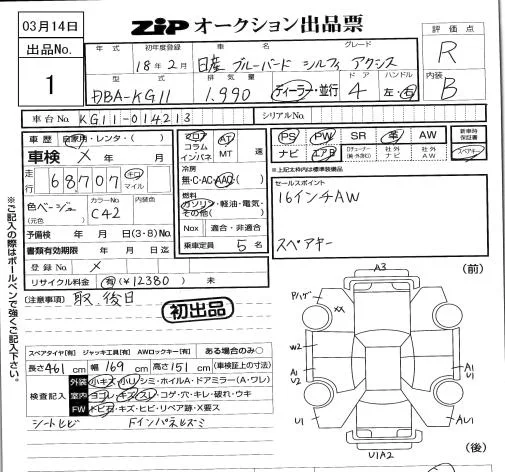 03月14日
ZIP オークション出品票
評価点
R
出品No.
1
年式 初年度登録 車名 グレード
18年2月 日産 ブルーバード シルフィ アクシス
型式 排気量 ドア ハンドル
DBA-KG11 1,990 ディーラー・並行 4 左・右
内装
B
車台No. KG11-014213 シリアルNo.
車歴 自家用・レンタ・( )
車検 × 年 月
走行 68707 キロ マイル
色 ベージュ カラーNo. C42 内装色
(元色)
予備検 年 月 日(3・8)No.
書類有効期限 年 月 日迄
登録No. ×
リサイクル料金 有(¥12380) 未
フロア コラム インパネ AT MT 速
冷房
無・C・AC・AAC・( )
燃料
ガソリン・軽油・電気・その他( )
Nox 適合・非適合
乗車定員 5 名
PS PW SR 革 AW 新車時保証書
ナビ エアB 社外ナビ 社外AW スペアキー
※上記太枠内は標準装備品
セールスポイント
16インチAW
スペアキー
(注意事項) 取、後日
初出品
※ご記入の際はボールペンで強くご記入下さい。
スペアタイヤ[有] ジャッキ工具[有] AWロックキー[有] ある場合のみ○
長さ461cm 幅169cm 高さ151cm (車検証上の寸法)
検査記入
外装 小キズ・小U・シミ・ホイルA・ドアミラー(A・ワレ)
室内 ヨゴレ・キズ・スレ・コゲ・穴・キレ・破れ・ウキ
FW トビ石・キズ・ヒビ・リペア跡・X要ス
シートヒビ Fインパネキズミ
(前)
A3
Pハゲ
XX
W2
A1
U2
A1
U1
U1
AU1
U1A2
(後)